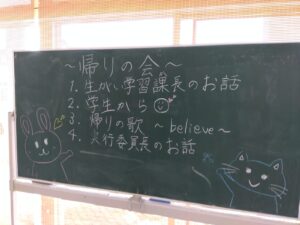 ～帰りの会～
1. 生がい学習課長のお話
2. 学生から
3. 帰りの歌 ～believe～
4. 実行委員長のお話